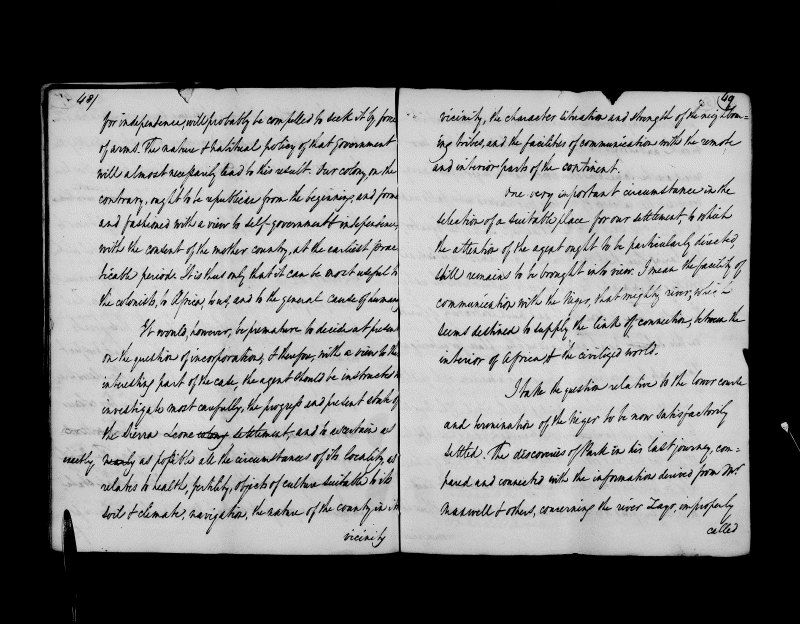 48/
for independence, will probably be compelled to seek it by force
of arms. The nature & habitual policy of that government
will almost necessarily lead to this result. Our colony, on the
contrary, ought to be republican from the beginning, and form'd
and fashioned with a view to self-government & independence,
with the consent of the mother country, at the earliest prac
ticable period. It is thus only that it can be most useful to
the colonists, to Africa, to us, and to the general cause of humanity
It would, however, be premature to decide at present
on the question of incorporation, & therefore, with a view to this
interesting part of the case, the agent should be instructed to
investigate most carefully, the progress and present state of
the Sierra Leone colony settlement, and to ascertain as
exactly nearly as possible all the circumstances of its locality, as
relates to health, fertility, objects of culture suitable to its
soil & climate, navigation, the nature of the country in its
vicinity
49
vicinity, the character situation and strength of the neighbour=
ing tribes, and the facilities of communication with the remote
and interior parts of the continent.
One very important circumstance in the
selection of a suitable place for our settlement, to which
the attention of the agent ought to be particularly directed,
still remains to be brought into view. I mean the facility of
communication with the Niger, that mighty river, which
seems destined to supply the link of connection, between the
interior of Africa & the civilized world.
I take the question relative to the lower course
and termination of the Niger to be now satisfactorily
settled. The discoveries of Park in his last journey, com=
pared and connected with the information derived from Mr.
Maxwell & others, concerning the river Zayr, improperly
called